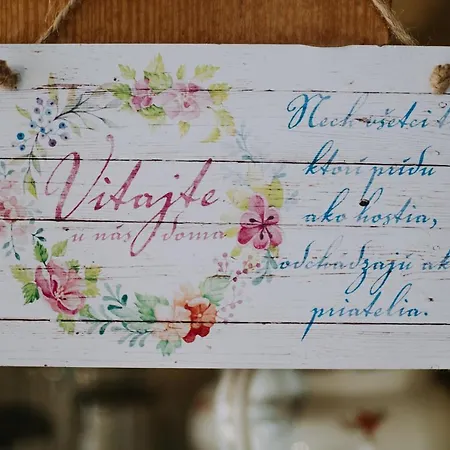 Vitajte
u nás doma
Nech všetci t
ktorí prídu
ako hostia,
odchádzajú ak
priatelia.